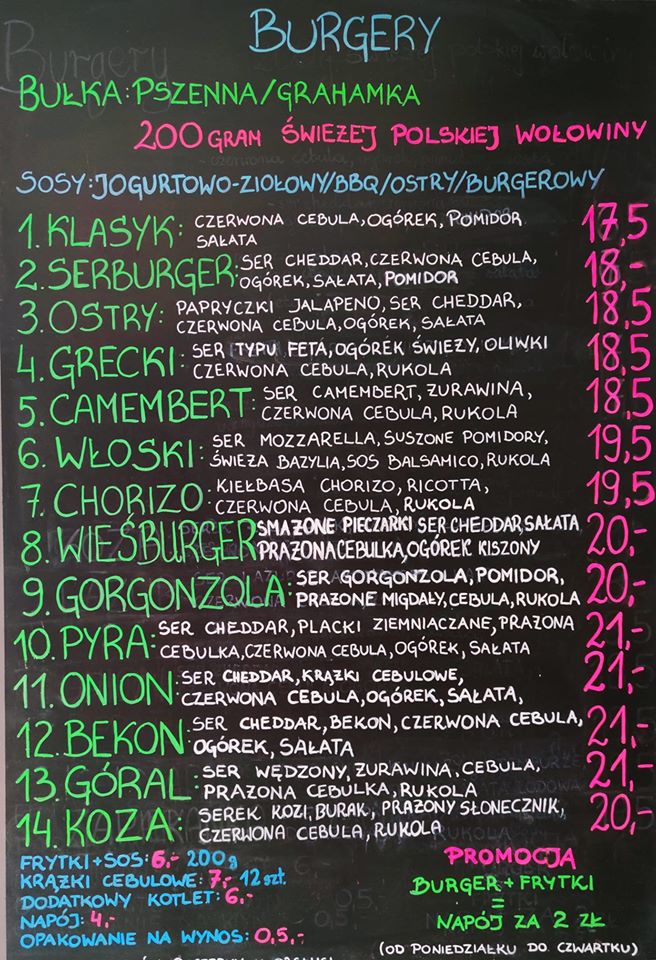 BURGERY
BUŁKA: PSZENNA/GRAHAMKA
200 GRAM ŚWIEŻEJ POLSKIEJ WOŁOWINY
SOSY: JOGURTOWO-ZIOŁOWY/BBQ/OSTRY/BURGEROWY
1. KLASYK: CZERWONA CEBULA, OGÓREK, POMIDOR 17,5
SAŁATA
2. SERBURGER: SER CHEDDAR, CZERWONA CEBULA, 18,-
OGÓREK, SAŁATA, POMIDOR
3. OSTRY: PAPRYCZKI JALAPENO, SER CHEDDAR, 18,5
CZERWONA CEBULA, OGÓREK, SAŁATA
4. GRECKI: SER TYPU FETA, OGÓREK ŚWIEŻY, OLIWKI 18,5
CZERWONA CEBULA, RUKOLA
5. CAMEMBERT: SER CAMEMBERT, ŻURAWINA, 18,5
CZERWONA CEBULA, RUKOLA
6. WŁOSKI: SER MOZZARELLA, SUSZONE POMIDORY, 19,5
ŚWIEŻA BAZYLIA, SOS BALSAMICO, RUKOLA
7. CHORIZO: KIEŁBASA CHORIZO, RICOTTA, 19,5
CZERWONA CEBULA, RUKOLA
8. WIEŚBURGER SMAŻONE PIECZARKI SER CHEDDAR, SAŁATA 20,-
PRAŻONA CEBULKA, OGÓREK KISZONY
9. GORGONZOLA: SER GORGONZOLA, POMIDOR, 20,-
PRAŻONE MIGDAŁY, CEBULA, RUKOLA
10. PYRA: SER CHEDDAR, PLACKI ZIEMNIACZANE, PRAŻONA 21,-
CEBULKA, CZERWONA CEBULA, OGÓREK, SAŁATA
11. ONION: SER CHEDDAR, KRĄŻKI CEBULOWE, 21,-
CZERWONA CEBULA, OGÓREK, SAŁATA,
12. BEKON: SER CHEDDAR, BEKON, CZERWONA CEBULA, 21,-
OGÓREK, SAŁATA
13. GÓRAL: SER WĘDZONY, ŻURAWINA, CEBULA, 21,-
PRAŻONA CEBULKA, RUKOLA
14. KOZA: SEREK KOZI, BURAK, PRAŻONY SŁONECZNIK, 20,-
CZERWONA CEBULA, RUKOLA
FRYTKI + SOS: 6,- 200g
KRĄŻKI CEBULOWE: 7,- 12 szt.
DODATKOWY KOTLET: 6,-
NAPÓJ: 4,-
OPAKOWANIE NA WYNOS: 0,5,-
PROMOCJA
BURGER + FRYTKI
=
NAPÓJ ZA 2 ZŁ
(OD PONIEDZIAŁKU DO CZWARTKU)